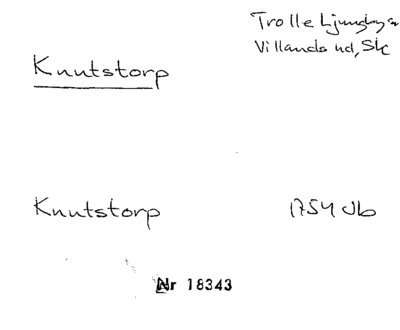 Trolle Ljungby sn
Villands hd, Sk
Knutstorp
Knutstorp 1754 Jb
Nr 18343